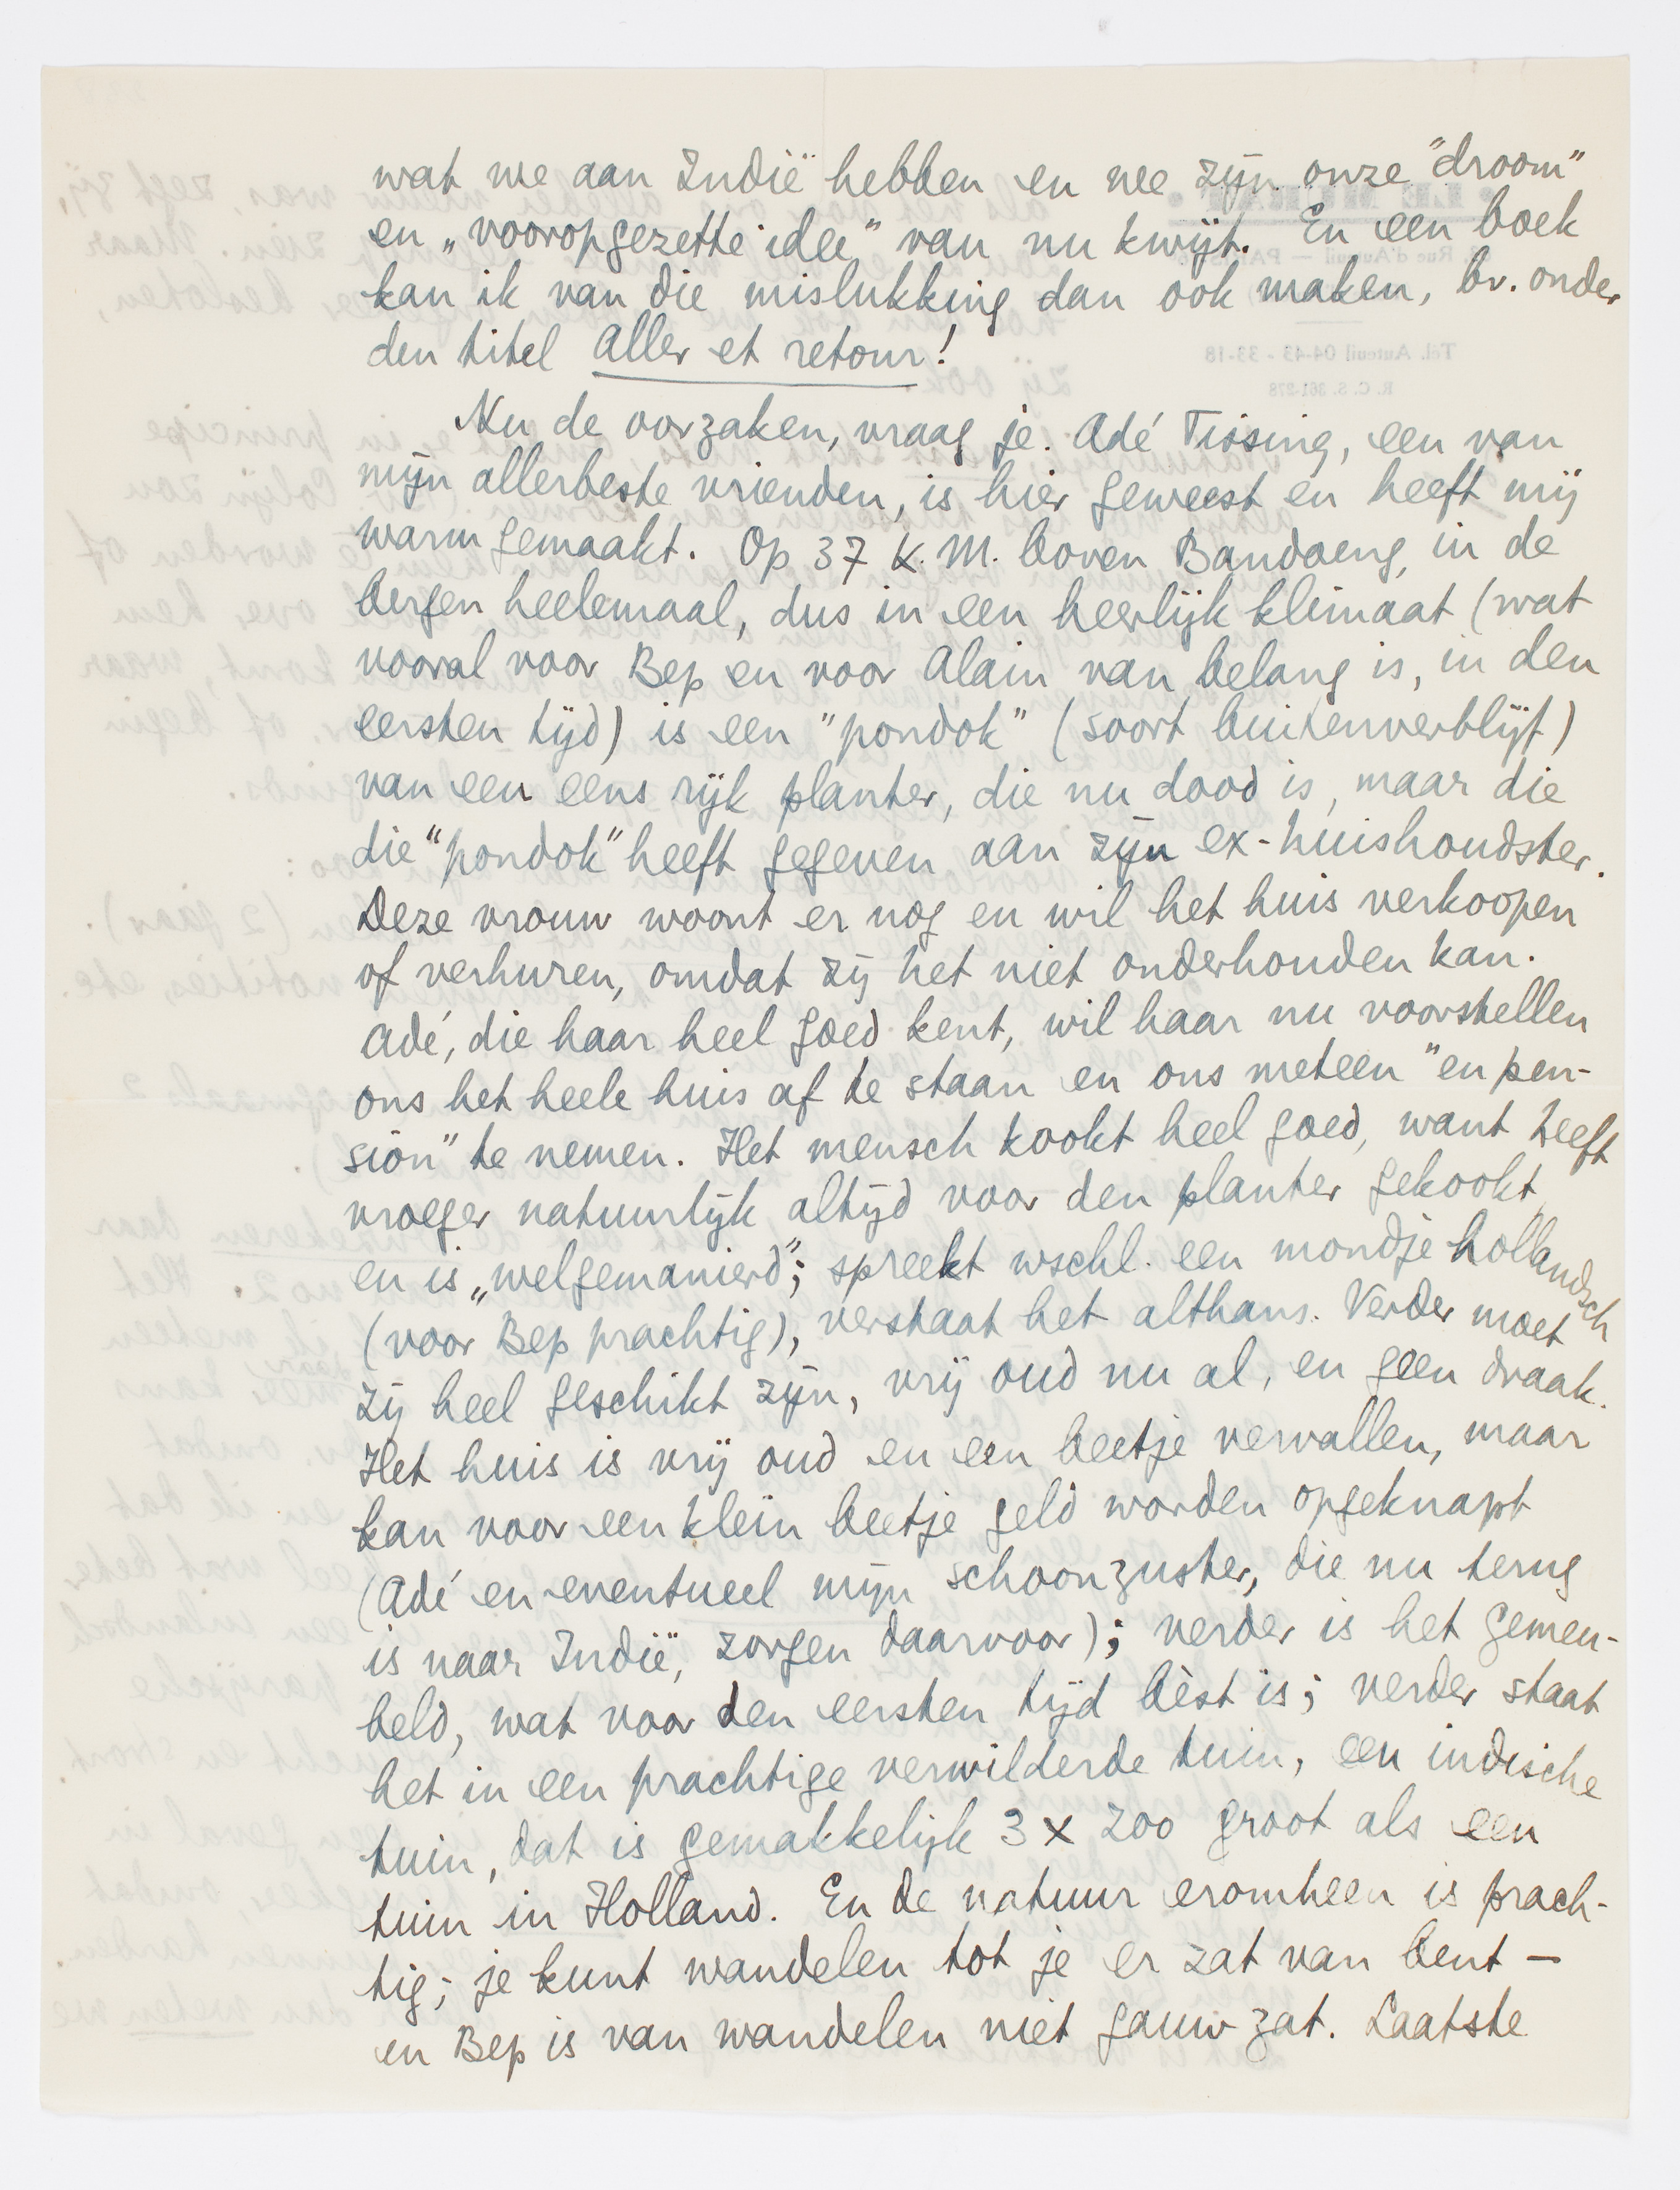 wat we aan Indië hebben en we zijn onze "droom"
en „vooropgezette idee” van nu kwijt. En een boek
kan ik van die mislukking dan ook maken, bv. onder
den titel Aller et retour!
Nu de oorzaken, vraag je. Adé Tissing, een van
mijn allerbeste vrienden, is hier geweest en heeft mij
warm gemaakt. Op 37 K.M. boven Bandoeng, in de
bergen heelemaal, dus in een heerlijk klimaat (wat
vooral voor Bep en voor Alain van belang is, in den
eersten tijd) is een "pondok" (soort buitenverblijf)
van een eens rijk planter, die nu dood is, maar die
die "pondok" heeft gegeven aan zijn ex-huishoudster.
Deze vrouw woont er nog en wil het huis verkoopen
of verhuren, omdat zij het niet onderhouden kan.
Adé, die haar heel goed kent, wil haar nu voorstellen
ons het heele huis af te staan en ons meteen "en pen-
sion" te nemen. Het mensch kookt heel goed, want heeft
vroeger natuurlijk altijd voor den planter gekookt,
en is „welgemanierd”; spreekt wschl. een mondje hollandsch
(voor Bep prachtig), verstaat het althans. Verder moet
zij heel geschikt zijn, vrij oud nu al, en geen draak.
Het huis is vrij oud en een beetje vervallen, maar
kan voor een klein beetje geld worden opgeknapt
(Adé en eventueel mijn schoonzuster, die nu terug
is naar Indië, zorgen daarvoor); verder is het gemeu-
beld, wat voor den eersten tijd bèst is; verder staat
het in een prachtige verwilderde tuin, een indische
tuin, dat is gemakkelijk 3 x zoo groot als een
tuin in Holland. En de natuur eromheen is prach-
tig; je kunt wandelen tot je er zat van bent —
en Bep is van wandelen niet gauw zat. Laatste